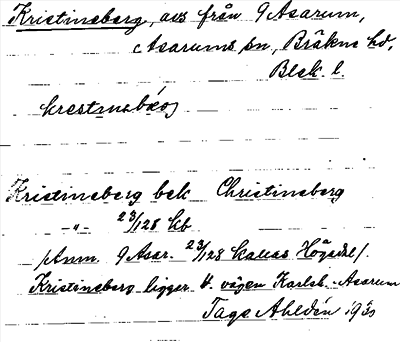 Kristineberg, avs från 9 Asarum,
Asarums sn, Bräkne hd,
Blek. l.
Kristineberg bek Christineberg
-"- 23/128 kb
/Anm. 9 Asar. 23/128 kallas Högadal/.
Kristineberg ligger v. vägen Karlsh.-Asarum
Tage Ahldén 1930